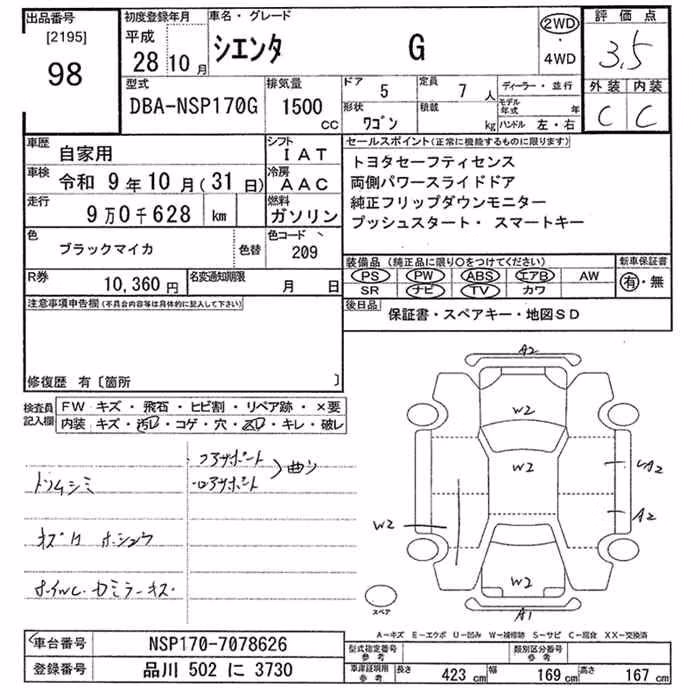 出品番号
[2195]
98
初度登録年月
平成
28年10月
車名・グレード
シエンタ G
2WD
・
4WD
評価点
3.5
外装 内装
C C
型式
DBA-NSP170G
排気量
1500
CC
ドア 5
定員 7 人
形状 ワゴン
積載 kg
ディーラー・並行
モデル年式 年
ハンドル 左・右
車歴
自家用
シフト
IAT
車検
令和 9年10月(31日)
冷房
AAC
走行
9万0千628 km
燃料
ガソリン
色
ブラックマイカ
色替
色コード
209
R券
10,360円
名変通知期限
月 日
セールスポイント(正常に機能するものに限ります)
トヨタセーフティセンス
両側パワースライドドア
純正フリップダウンモニター
プッシュスタート・ スマートキー
装備品(純正品に限り○をつけてください)
PS PW ABS エアB AW
SR ナビ TV カワ
新車保証書
有・無
後日品
保証書・スペアキー・地図SD
注意事項申告欄(不具合内容等は具体的に記入して下さい)
修復歴 有〔箇所 〕
検査員記入欄
FW キズ・飛石・ヒビ割・リペア跡・×要
内装 キズ・汚レ・コゲ・穴・スレ・キレ・破レ
コアサポート
ロアサポート
曲リ
トリムシミ
A2
W2
W2
A2
A2
W2
W2
A1
スペア
A-キズ E-エクボ U-凹み W-補修跡 S-サビ C-腐食 XX-交換済
車台番号
NSP170-7078626
登録番号
品川 502 に 3730
型式指定番号
参考
類別区分番号
参考
車庫証明用
参考
長さ 423 cm
幅 169 cm
高さ 167 cm